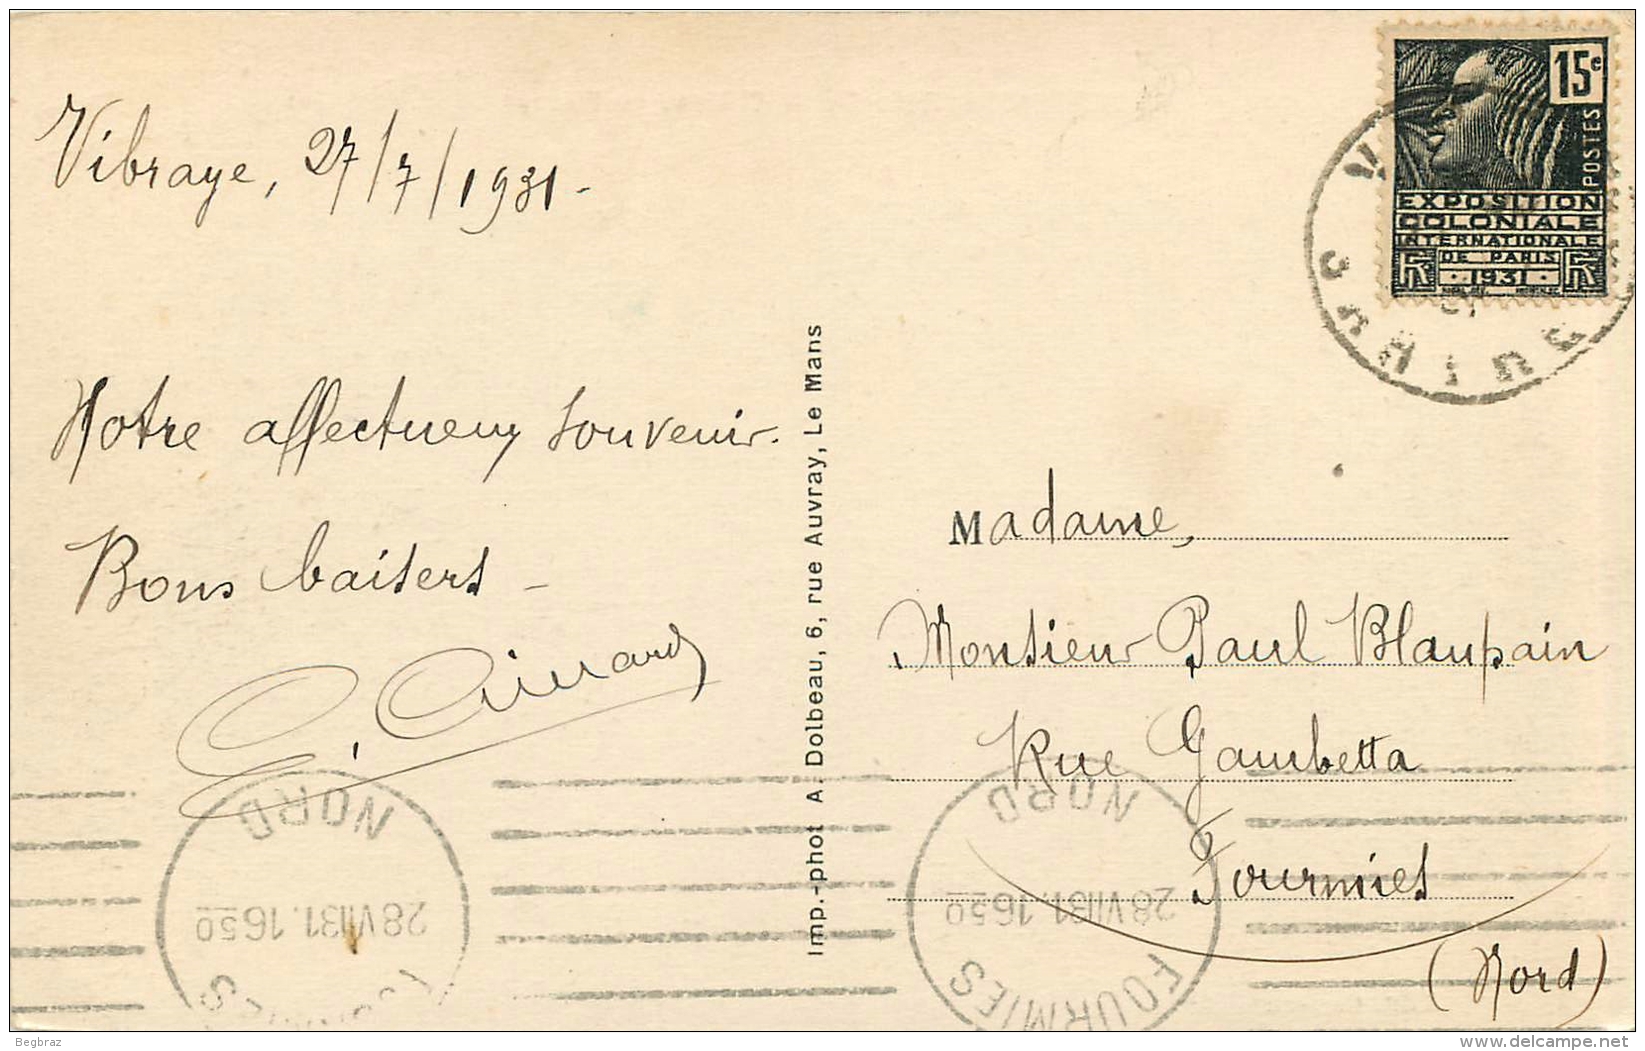 Vibraye, 27/7/1931.-
Notre affectueux souvenir.
Bons baisers -
Imp.-phot A. Dolbeau, 6, rue Auvray, Le Mans
15c
POSTES
EXPOSITION
COLONIALE
INTERNATIONALE
DE PARIS
RF 1931 RF
Madame,
Monsieur Paul Blaupain
Rue Gambetta
Fourmies
(Nord)
NORD
28 VII31.1650
FOURMIES
NORD
28 VII31.1650
FOURMIES
Begbraz
delcampe.net